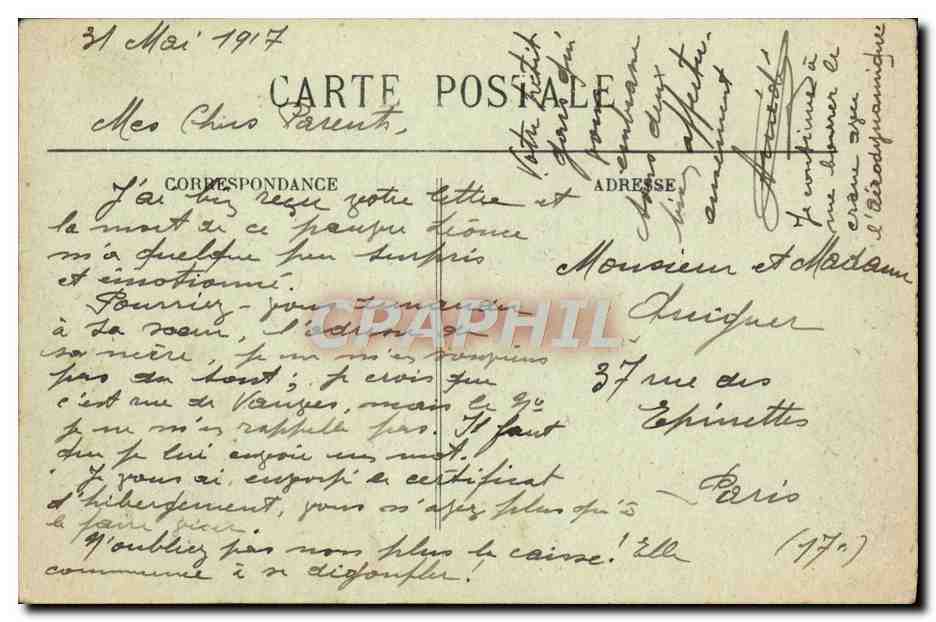 31 Mai 1917
CARTE POSTALE
Mes Chers Parents,
CORRESPONDANCE
J'ai bien reçu votre lettre et
la mort de ce pauvre Léonce
m'a quelque peu surpris
et émotionné.
Pourriez-vous demander
à sa soeur, l'adresse de
sa mère, je ne m'en souviens
pas du tout; je crois que
c'est rue de Vanves, mais le No
je ne m'en rappelle pas. Il faut
que je lui envoie un mot.
Je vous ai envoyé le certificat
d'hébergement, vous n'avez plus qu'à
le faire viser.
N'oubliez pas non plus la caisse! Elle
commence à se dégonfler!
Votre petit
gars qui
vous
embrasse
tous deux
bien affectu-
eusement
Je continue à
me bourrer le
crâne avec
l'aérodynamique
ADRESSE
Monsieur et Madame
Quiguer
37 rue des
Epinettes
Paris
(17e)
CPAPHIL